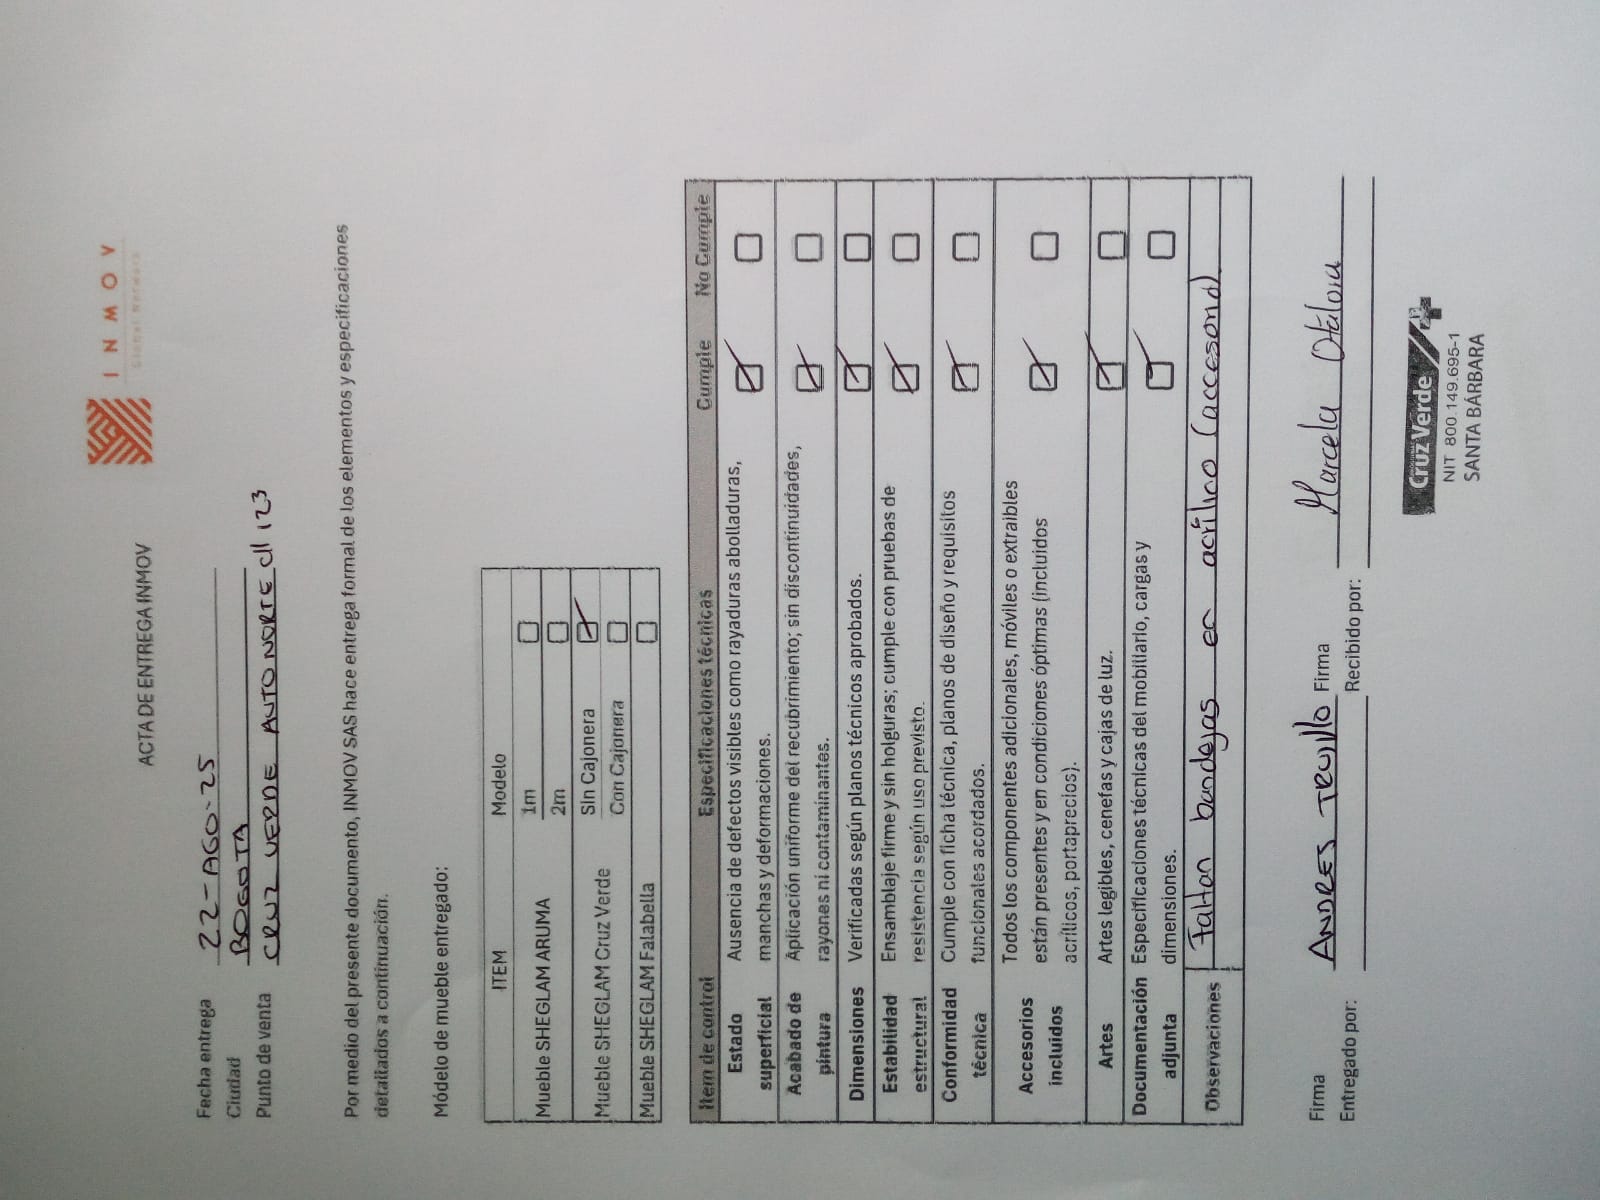 INMOV
Global Network
ACTA DE ENTREGA INMOV
Fecha entrega 22-AGO-25
Ciudad BOGOTA
Punto de venta CRUZ VERDE AUTONORTE cll 123
Por medio del presente documento, INMOV SAS hace entrega formal de los elementos y especificaciones
detallados a continuación.
Módelo de mueble entregado:
ITEM Modelo
Mueble SHEGLAM ARUMA 1m
2m
Mueble SHEGLAM Cruz Verde Sin Cajonera
Con Cajonera
Mueble SHEGLAM Falabella
Ítem de control Especificaciones técnicas Cumple No Cumple
Estado Ausencia de defectos visibles como rayaduras abolladuras,
superficial manchas y deformaciones.
Acabado de Aplicación uniforme del recubrimiento; sin discontinuidades,
pintura rayones ni contaminantes.
Dimensiones Verificadas según planos técnicos aprobados.
Estabilidad Ensamblaje firme y sin holguras; cumple con pruebas de
estructural resistencia según uso previsto.
Conformidad Cumple con ficha técnica, planos de diseño y requisitos
técnica funcionales acordados.
Accesorios Todos los componentes adicionales, móviles o extraibles
incluidos están presentes y en condiciones óptimas (incluidos
acrílicos, portaprecios).
Artes Artes legibles, cenefas y cajas de luz.
Documentación Especificaciones técnicas del mobiliario, cargas y
adjunta dimensiones.
Observaciones Faltan bandejas en acrílico (accesorio)
Firma ANDRES TRUJILLO Firma Marcela Otálora
Entregado por: Recibido por:
Cruz Verde
NIT 800.149.695-1
SANTA BÁRBARA